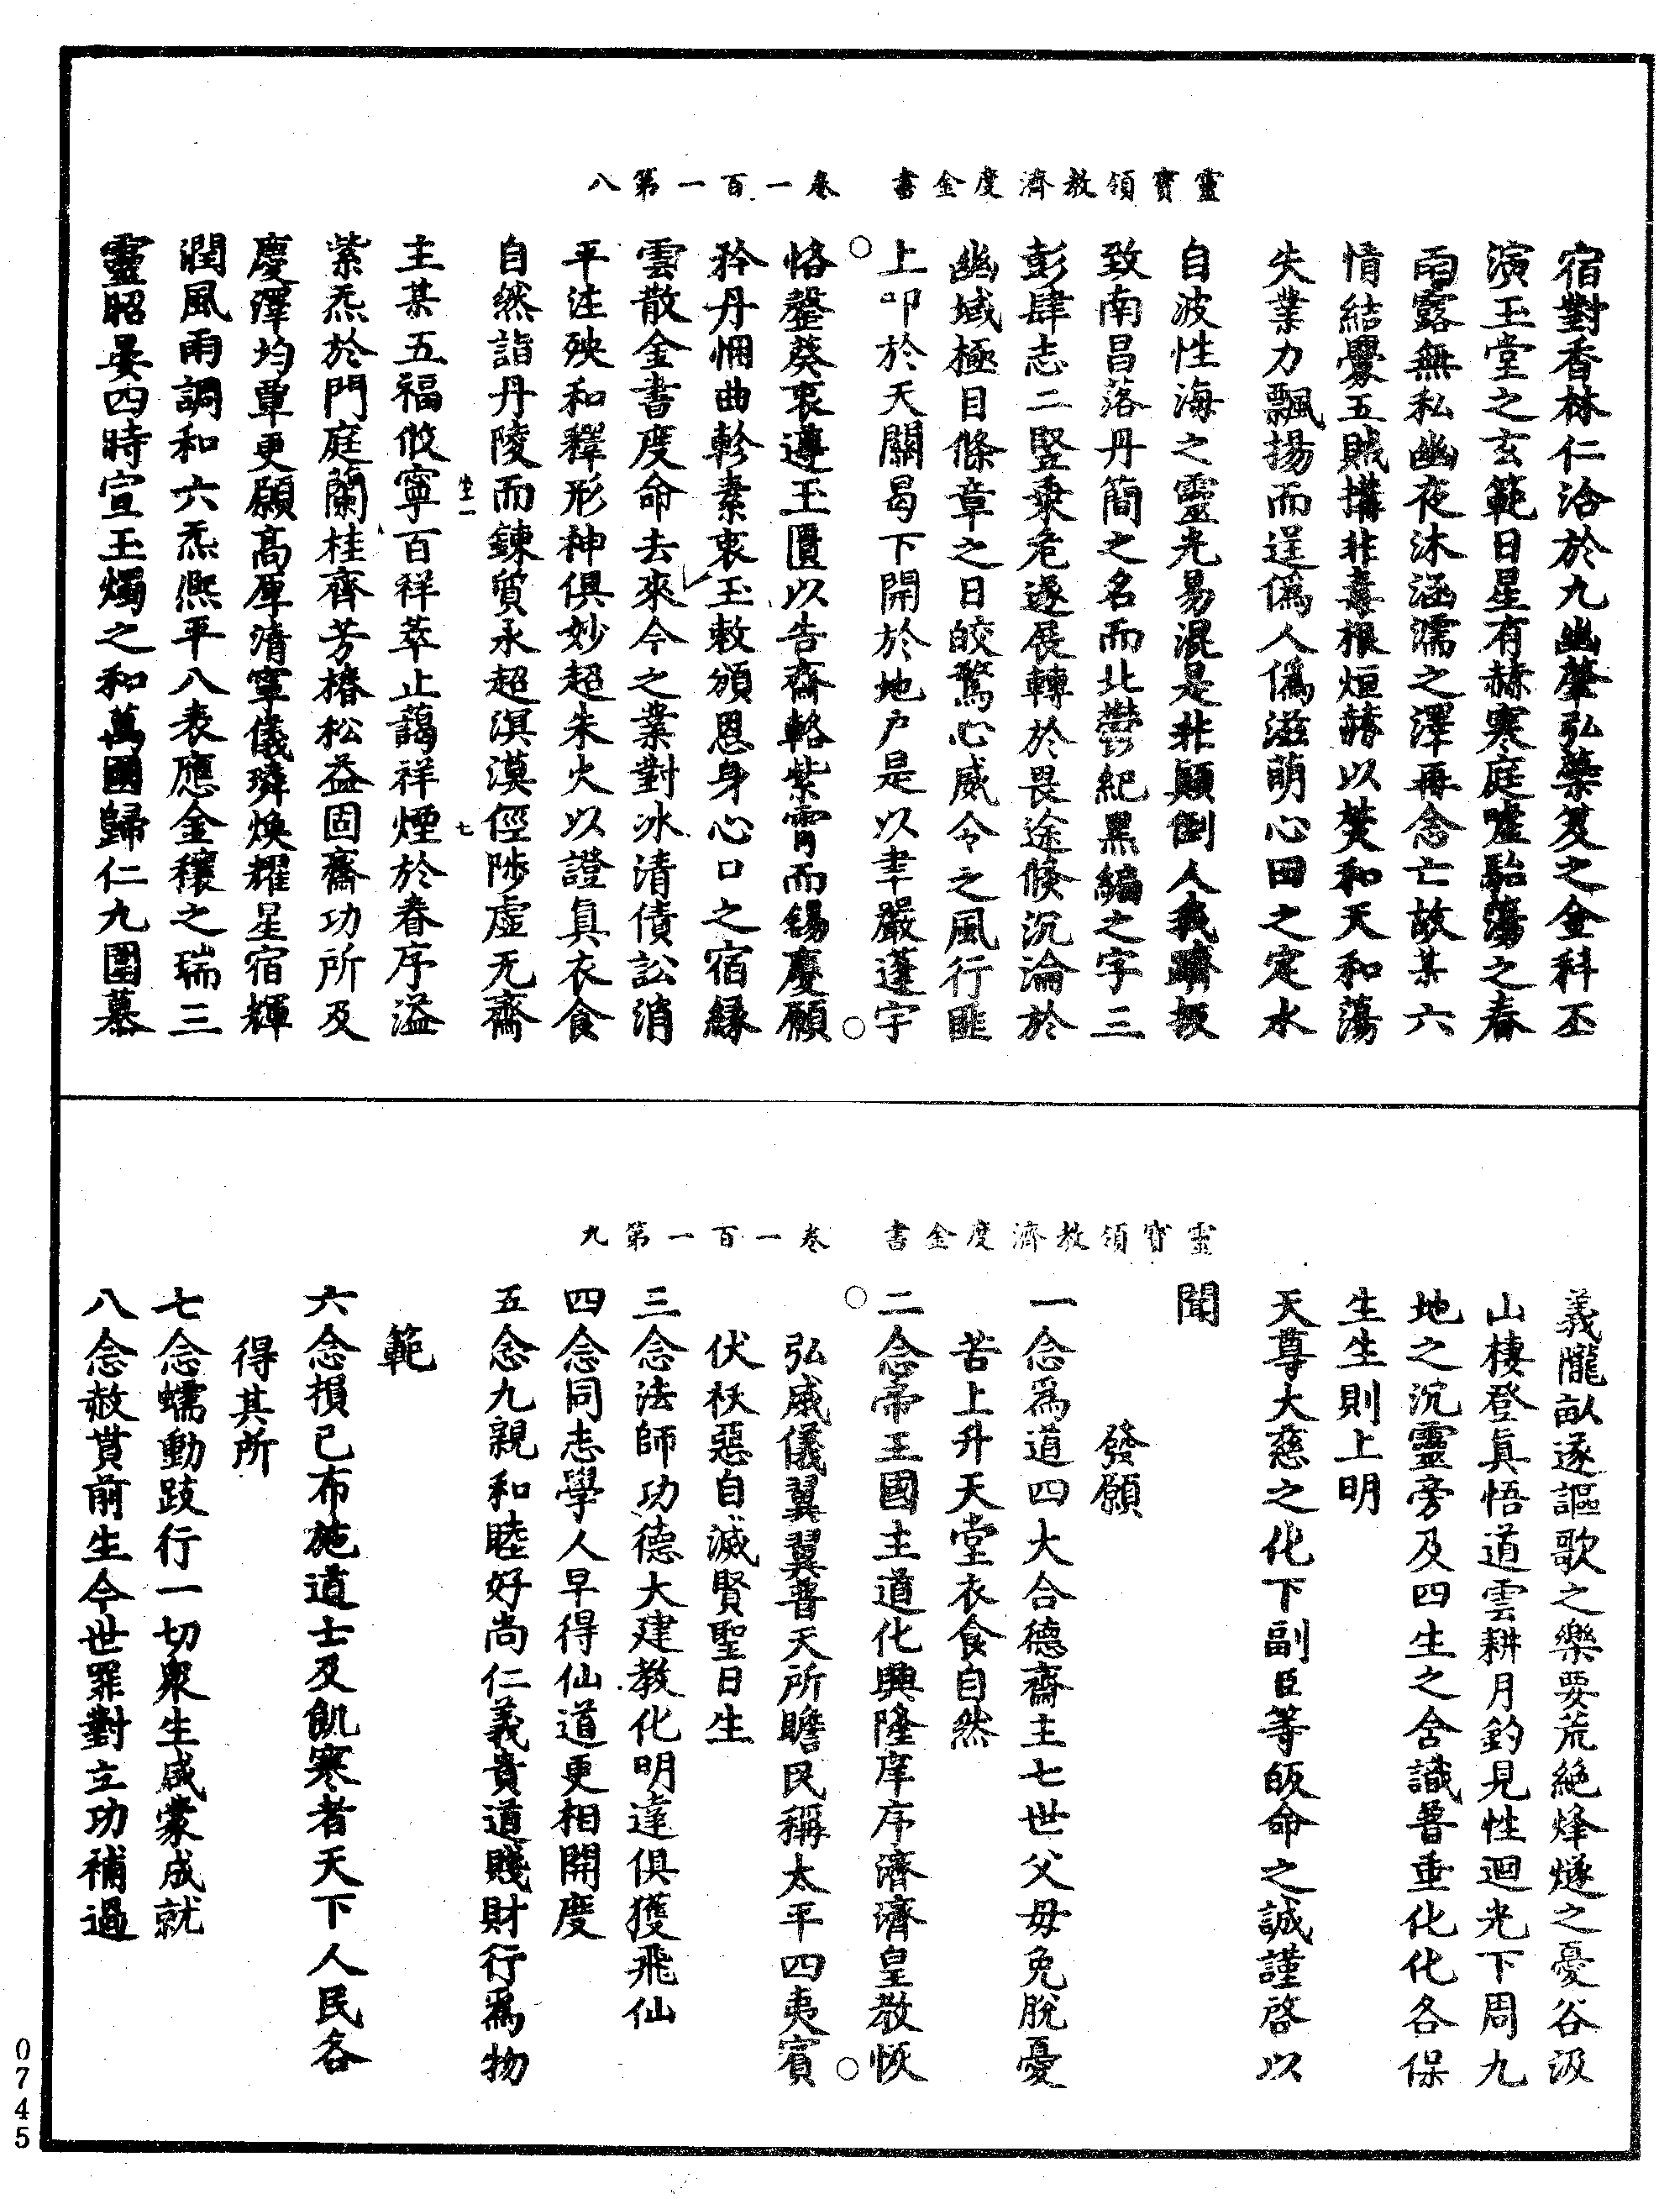 靈寶領教濟度金書　卷一百一第八
宿對香林仁洽於九幽肇弘蘂笈之金科丕
演玉堂之玄範日星有赫寒庭噓駘蕩之春
雨露無私幽夜沐涵濡之澤再念亡故某六
情結釁五賊搆非毒根烜赫以焚和天和蕩
失業力飄揚而逞僞人僞滋萌心田之定水
自波性海之靈光易混是非顛倒人我躋扳
致南昌落丹簡之名而北酆紀黑編之字三
彭肆志二豎乗危遂展轉於畏途倏沉淪於
幽域極目絛章之日皎驚心威令之風行匪
上叩於天關曷下開於地户是以聿嚴蓬宇
恪罄葵衷遵玉匱以告齋輅紫霄而錫慶願
矜丹悃曲軫素衷玉敕頒恩身心口之宿縁
雲散金書度命去來今之業對冰清債訟消
平注殃和釋形神俱妙超朱火以證眞衣食
自然詣丹陵而鍊質永超溟漠俓陟虛无齋
生一　七
主某五福攸寧百祥萃止藹祥煙於春序溢
紫炁於門庭蘭桂齊芳椿松益固齋功所及
慶澤均覃更願高厚清寧儀璘煥耀星宿輝
潤風雨調和六炁熈平八表應金穰之瑞三
靈昭晏四時宣玉燭之和萬國歸仁九圍慕
靈寶領教濟度金書　卷一百一第九
義隴畝遂謳歌之樂要荒絶烽燧之憂谷汲
山棲登眞悟道雲耕月釣見性迴光下周九
地之沉靈旁及四生之含識普重化化各保
生生則上明
天尊大慈之化下副臣等皈命之誠謹啓以
聞
發願
一念爲道四大合德齋主七世父母免脫憂
苦上升天堂衣食自然
二念帝王國主道化興隆庠序濟濟皇教恢
弘威儀翼翼普天所瞻民稱太平四夷賓
伏祅惡自滅賢聖日生
三念法師功德大建教化明達俱獲飛仙
四念同志學人早得仙道更相開度
五念九親和睦好尚仁義貴道賤財行爲物
範
六念損己布施道士及飢寒者天下人民各
得其所
七念蠕動跂行一切衆生咸蒙成就
八念赦貰前生今世罪對立功補過
0745